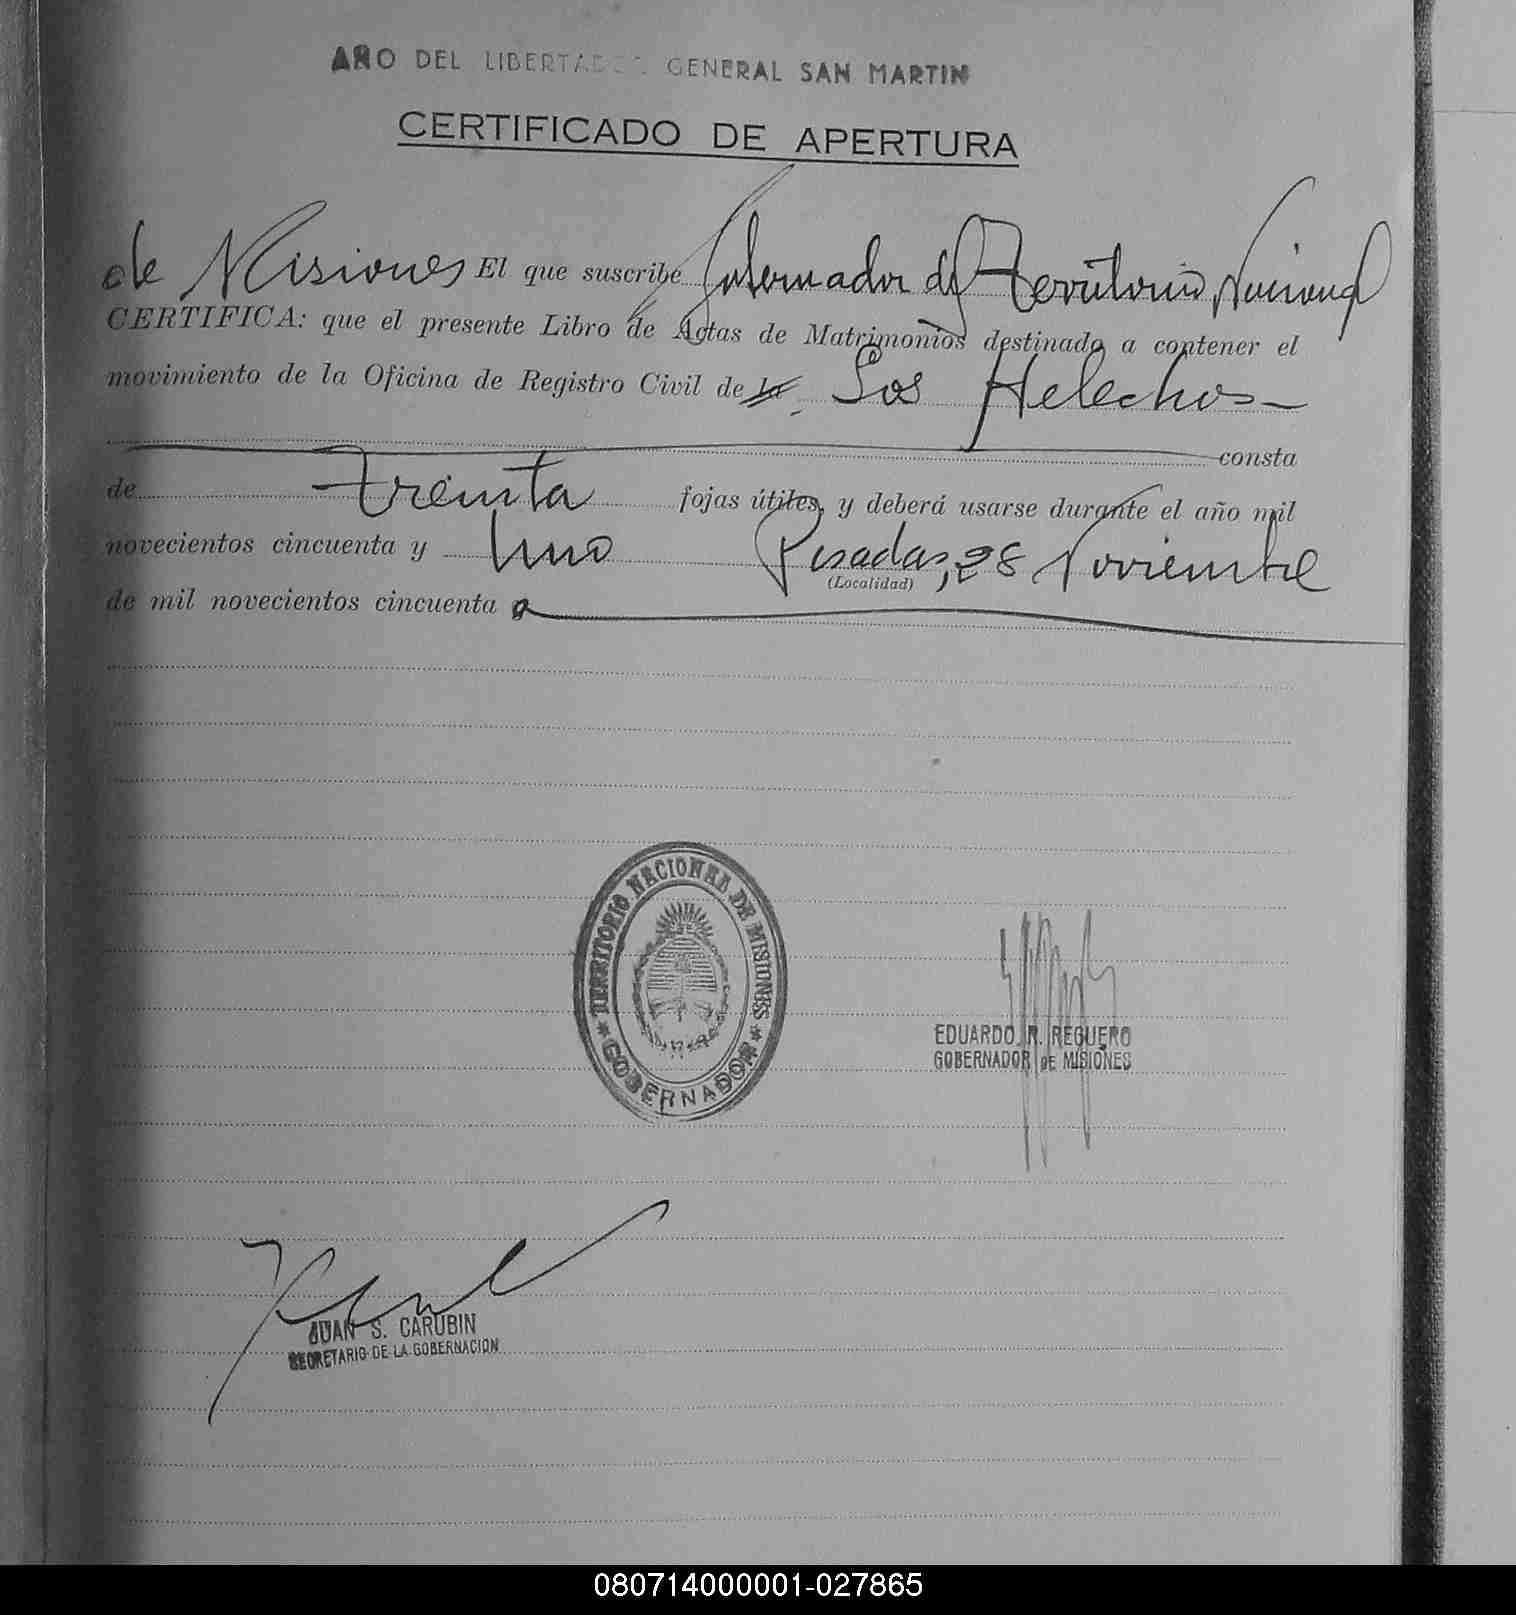 AÑO DEL LIBERTADOR GENERAL SAN MARTIN
CERTIFICADO DE APERTURA
de Misiones El que suscribe Gobernador del Territorio Nacional
CERTIFICA: que el presente Libro de Actas de Matrimonios destinado a contener el
movimiento de la Oficina de Registro Civil de la Los Helechos
consta
de treinta fojas útiles, y deberá usarse durante el año mil
novecientos cincuenta y uno Posadas, 28 Noviembre
(Localidad)
de mil novecientos cincuenta
TERRITORIO NACIONAL DE MISIONES
GOBERNADOR
EDUARDO R. REGUERO
GOBERNADOR DE MISIONES
JUAN S. CARUBIN
SECRETARIO DE LA GOBERNACION
080714000001-027865